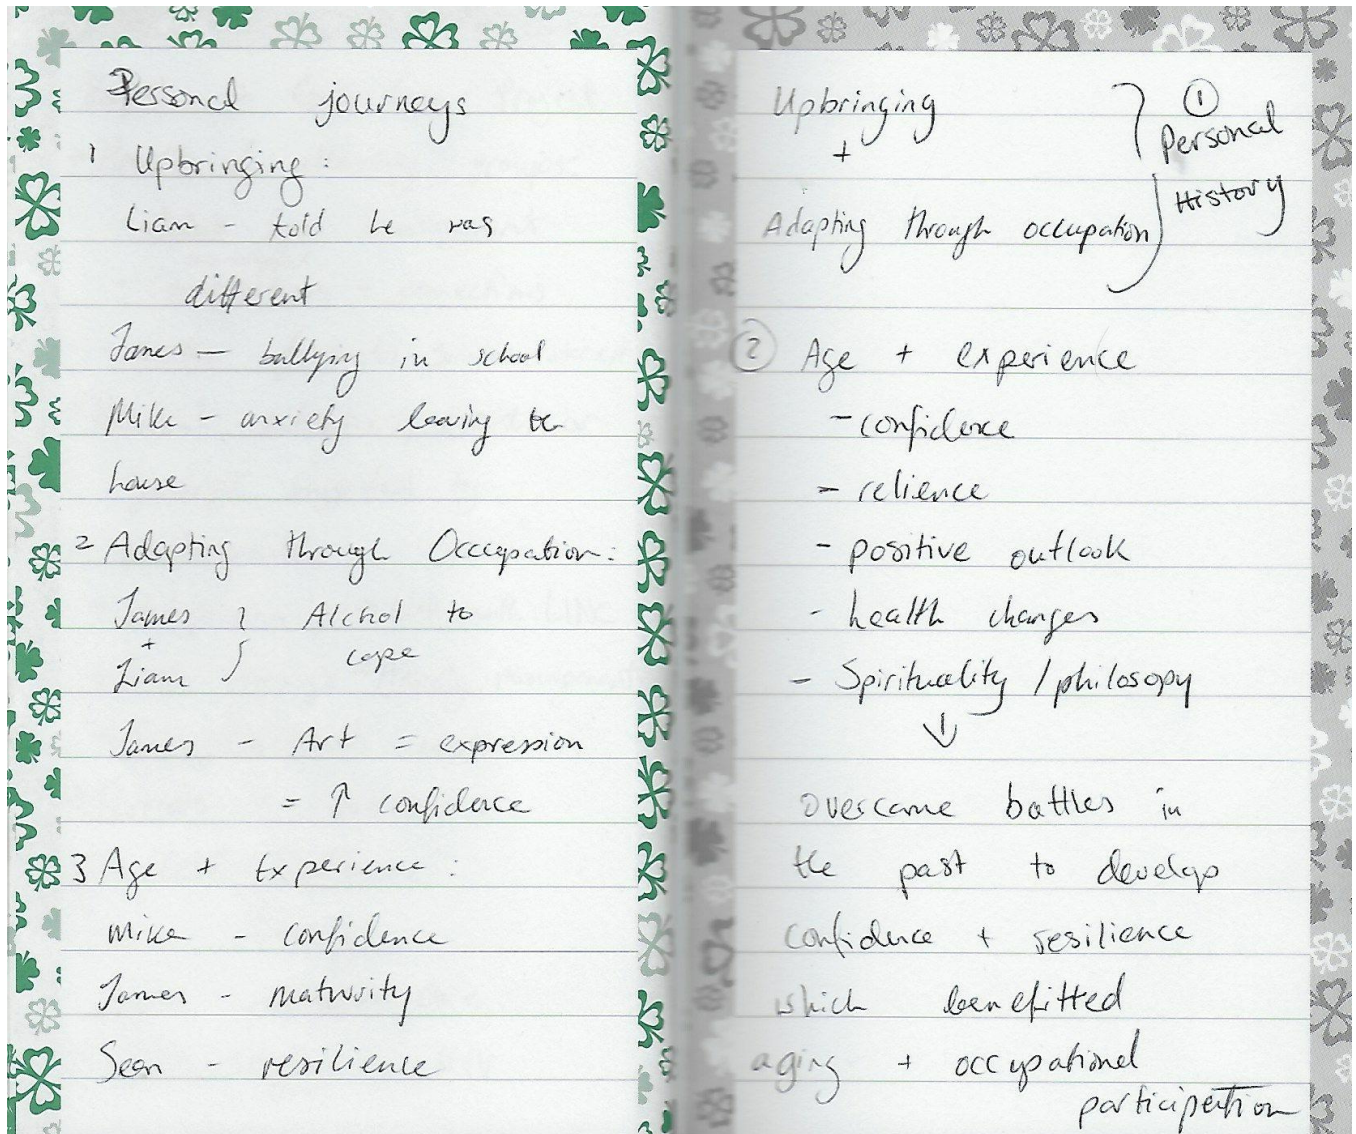 Personal journeys
1 Upbringing:
Liam - told he was
different
James - bullying in school
Mike - anxiety leaving the
house
2 Adapting through Occcupation:
James } Alchol to
+ cope
Liam
James - Art = expression
= ↑ confidence
3 Age + Experience:
Mike - confidence
James - maturity
Sean - resilience
Upbringing
+
Adapting through occupation
① Personal
History
② Age + experience
- confidence
- relience
- positive outlook
- health changes
- Spirituality / philosopy
↓
overcame battles in
the past to develop
confidence + resilience
which benefitted
aging + occupational
participation